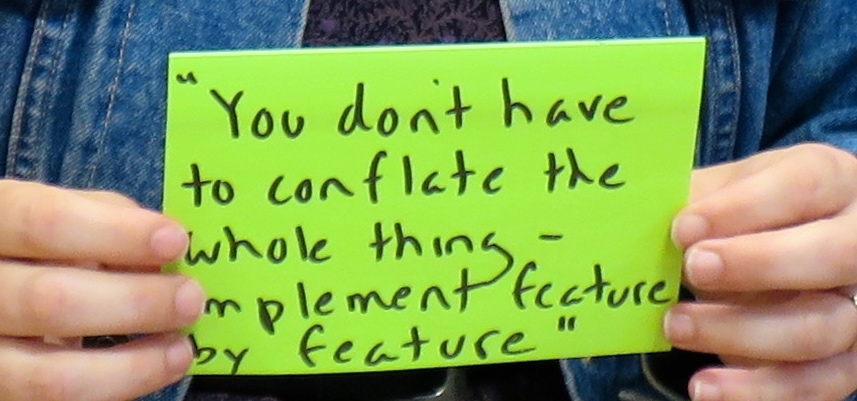 "You don't have
to conflate the
whole thing -
implement feature
by feature"